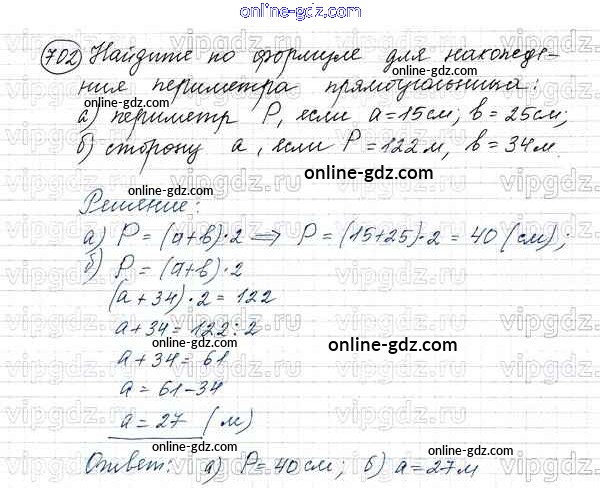 online-gdz.com
702 Найдите по формуле для нахожде-
ния периметра прямоугольника:
а) периметр P, если a = 15 см; b = 25 см;
б) сторону a, если P = 122 м, b = 34 м.
online-gdz.com
online-gdz.com
Решение:
online-gdz.com
а) P = (a+b)·2 ⟹ P = (15+25)·2 = 40 (см);
б) P = (a+b)·2
online-gdz.com
(a + 34)·2 = 122
a + 34 = 122 : 2
online-gdz.com
a + 34 = 61
a = 61 - 34
online-gdz.com
a = 27 (м)
online-gdz.com
online-gdz.com
Ответ: а) P = 40 см; б) a = 27 м
vipgdz.ru vipgdz.ru vipgdz.ru